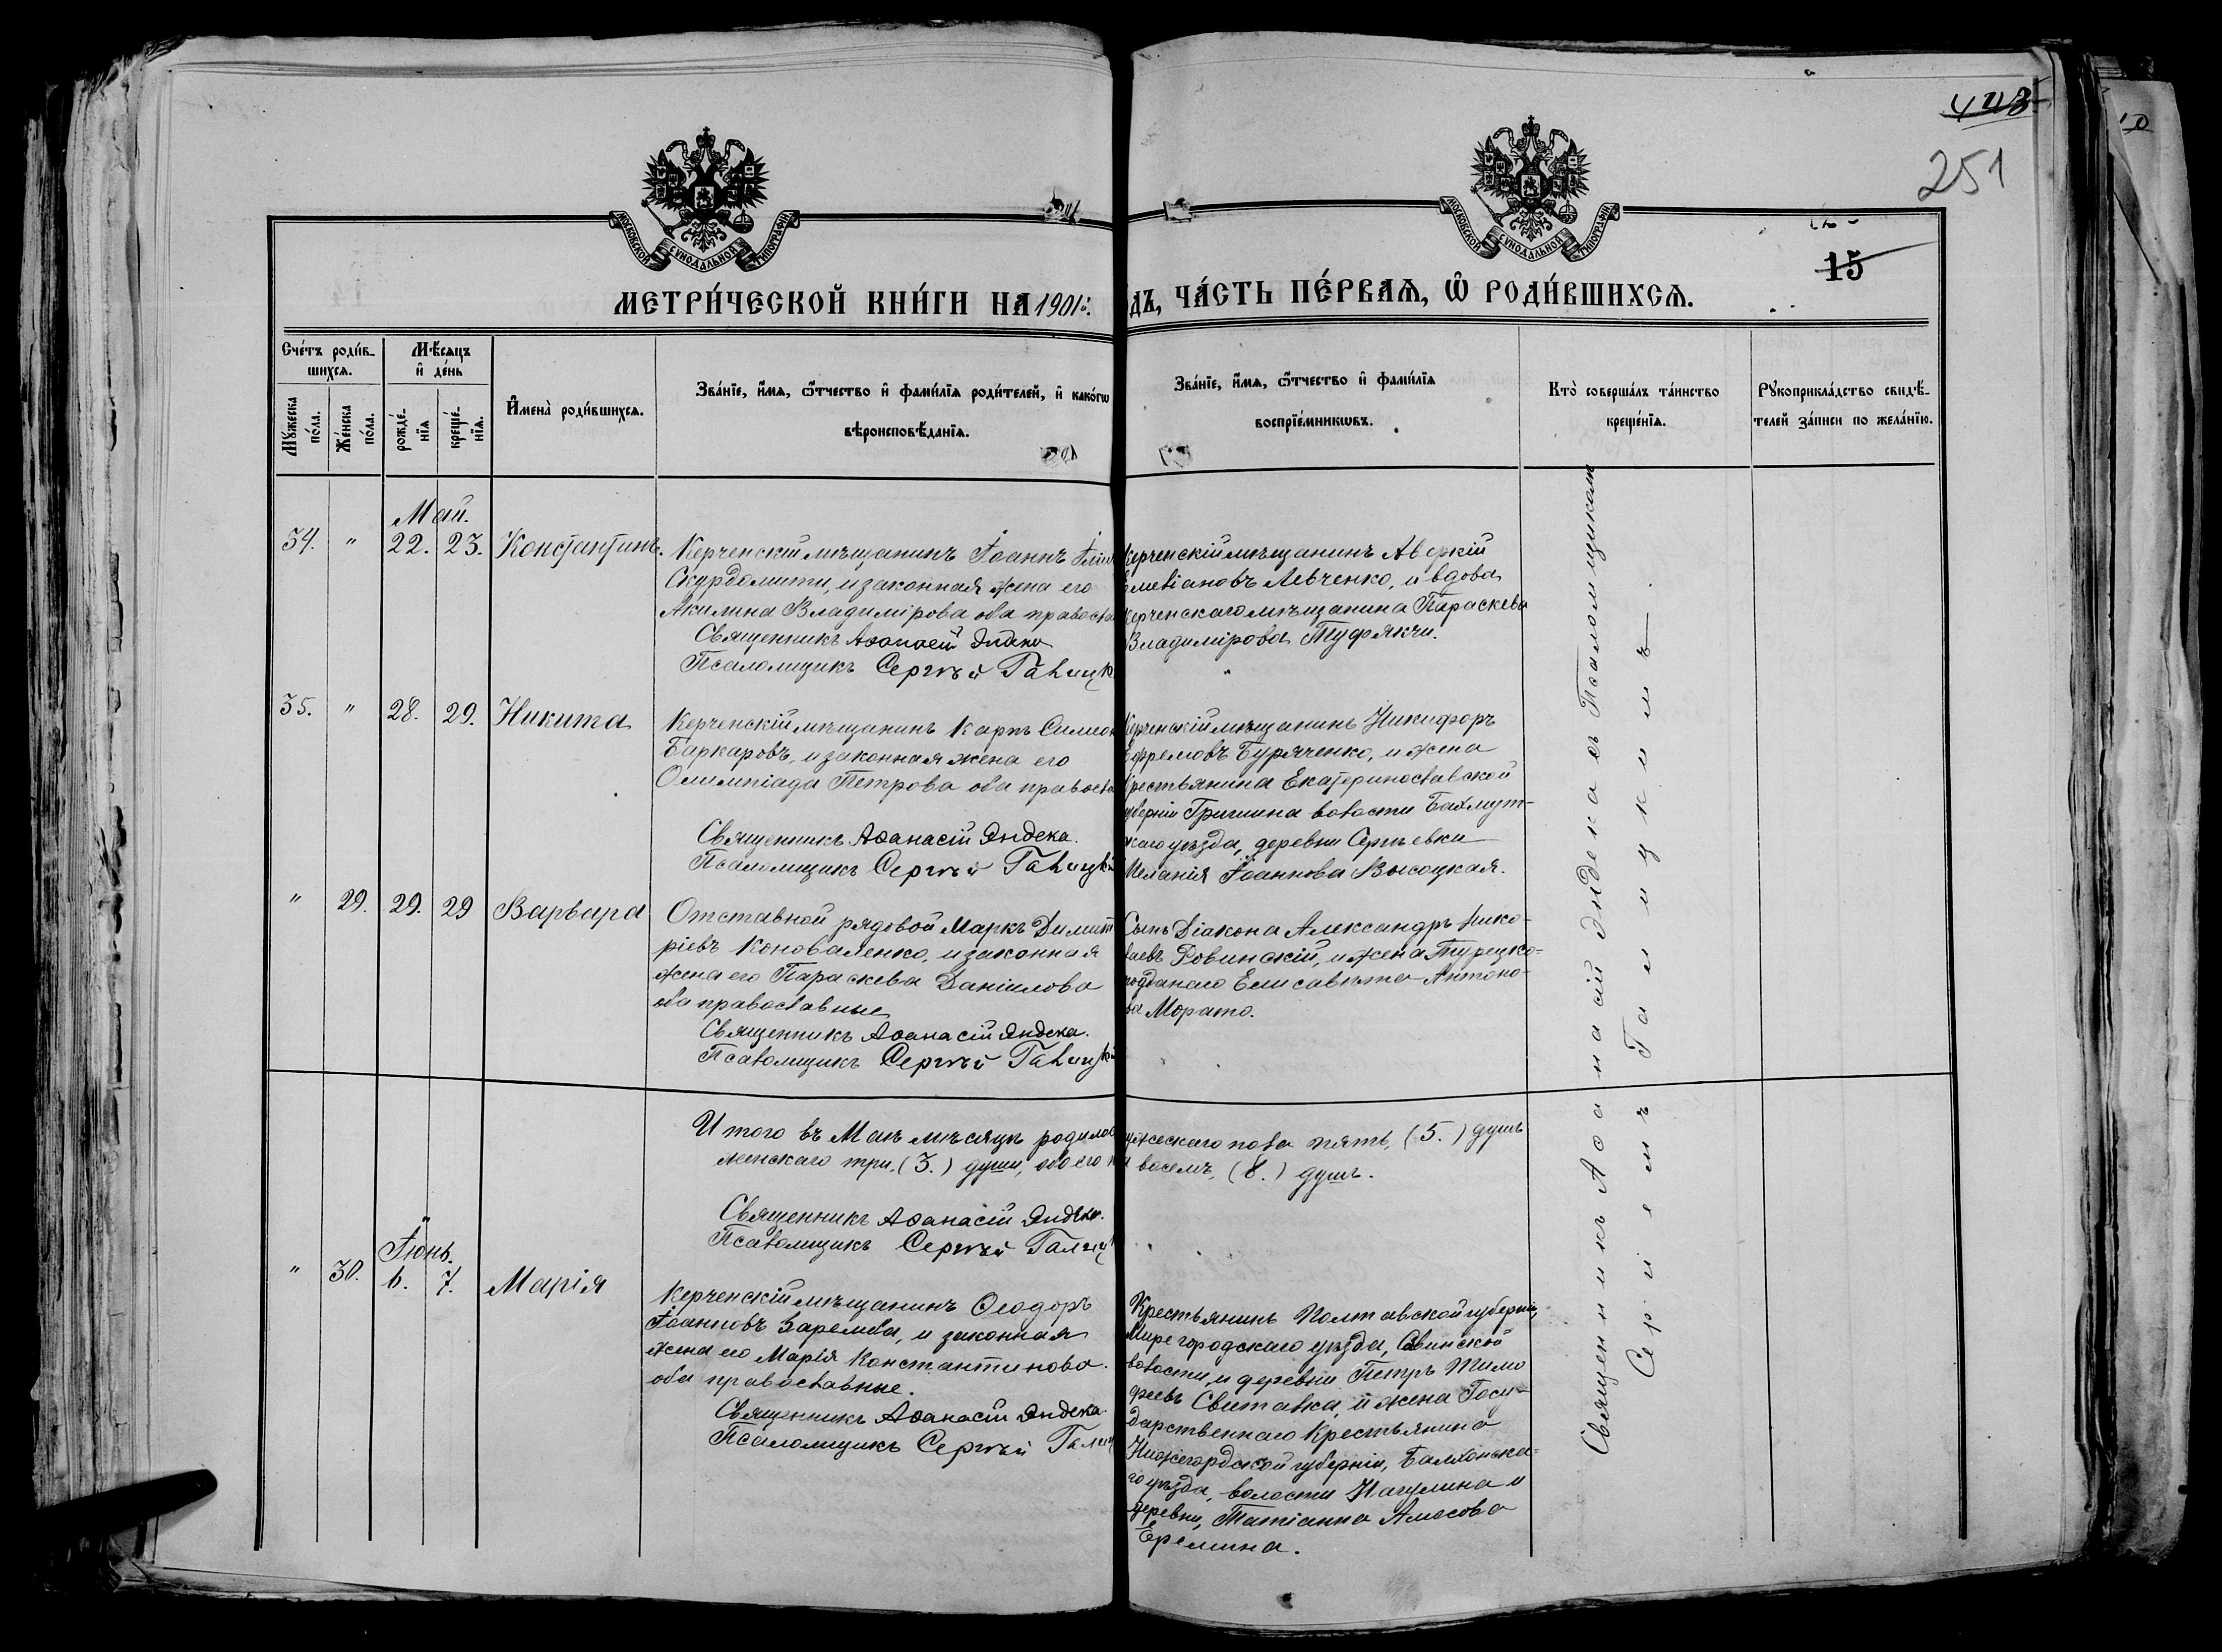 251
15
МОСКОВСКОЙ СУНОДАЛЬНОЙ ТИПОГРАФІИ
МОСКОВСКОЙ СУНОДАЛЬНОЙ ТИПОГРАФІИ
МЕТРИ́ЧЕСКОЙ КНИ́ГИ НА 1901 г.
дъ, ЧА́СТЬ ПЕ́РВАѦ, Ѡ РОДИ́ВШИХСѦ.
Сче́тъ роди́в-
шихсѧ.
Мѣ́сѧцъ
и҆ де́нь
Мꙋ́жеска
по́ла.
Же́нска
по́ла.
рожде́-
нїѧ
креще́-
нїѧ.
И҆мена̀ роди́вшихсѧ.
Зва́нїе, и҆́мѧ, ѻ҆́тчество и҆ фами́лїѧ роди́телей, и҆ како́гѡ
вѣроисповѣ́данїѧ.
Зва́нїе, и҆́мѧ, ѻ҆́тчество и҆ фами́лїѧ
воспрїе́мникѡвъ.
Кто̀ соверша́лъ та́инство
креще́нїѧ.
Рꙋкоприкла́дство свидѣ́-
телей за́писи по жела́нїю.
Май.
34. " 22. 23. Константинъ.
Керченскій мѣщанинъ Іоаннъ
Скурдомити, и законная жена его
Акилина Владимірова оба правосла
Священникъ Аѳанасій Яндека
Псаломщикъ Сергѣй Галицк
Керченскій мѣщанинъ Аверкій
Емеліановъ Левченко, и вдова
Керченскаго мѣщанина Параскева
Владимірова Туфякчи.
35. " 28. 29. Никита
Керченскій мѣщанинъ Карпъ Симеон
Баркаровъ, и законная жена его
Олимпіада Петрова оба правосла
Священникъ Аѳанасій Яндека.
Псаломщикъ Сергѣй Галицкі
Керченскій мѣщанинъ Никифоръ
Ефремовъ Буряченко, и жена
Крестьянина Екатеринославской
губерніи Гришина волости Бахмут-
скаго уѣзда, деревни Сергѣевки
Меланія Іоаннова Высоцкая.
" 29. 29. 29 Варвара
Отставной рядовой Маркъ Димит
ріевъ Коноваленко, и законная
жена его Параскева Даніилова
оба православные
Священникъ Аѳанасій Яндека.
Псаломщикъ Сергѣй Галицкі
Сынъ Діакона Александръ Нико-
лаевъ Ровинскій, и жена Турецко-
подданаго Елисавѣта Антоно-
ва Морато.
Итого въ Маѣ мѣсяцѣ родилос
женскаго три, (3.) души, обоего
мужескаго пола пять, (5.) душъ
восемъ, (8.) душъ.
Священникъ Аѳанасій Яндека.
Псаломщикъ Сергѣй Галиц
Іюнь.
" 30. 6. 7. Марія
Керченскій мѣщанинъ Ѳеодоръ
Іоанновъ Заремба, и законная
жена его Марія Константинова.
оба православные.
Священникъ Аѳанасій Яндека
Псаломщикъ Сергѣй Галиц
Крестьянинъ Полтавской губерніи,
Миргородскаго уѣзда, Савинской
волости, и деревни Петръ Тимо
феевъ Свитавка, и жена Госу-
дарственнаго Крестьянина
Нижегородской губерніи, Балахонска-
го уѣзда, волости Нагулина и
деревни, Татіанна Амосова
Еремина.
Священникъ Аѳанасій Яндека съ Псаломщикомъ
Сергіемъ Галицкимъ.